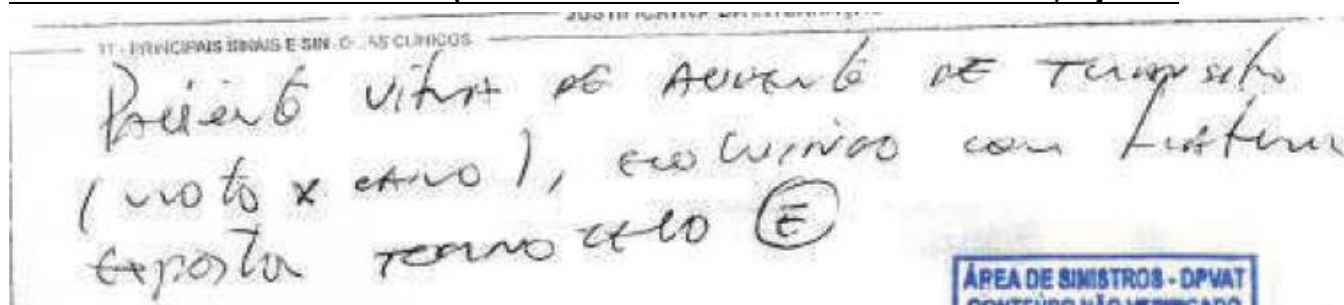 JUSTIFICATIVA DA INTERNAÇÃO
17 - PRINCIPAIS SINAIS E SINTOMAS CLÍNICOS
Paciente vítima de acidente de trânsito
(moto x carro), evoluindo com fratura
exposta tornozelo (E)
ÁREA DE SINISTROS - DPVAT
CONTEÚDO NÃO VERIFICADO